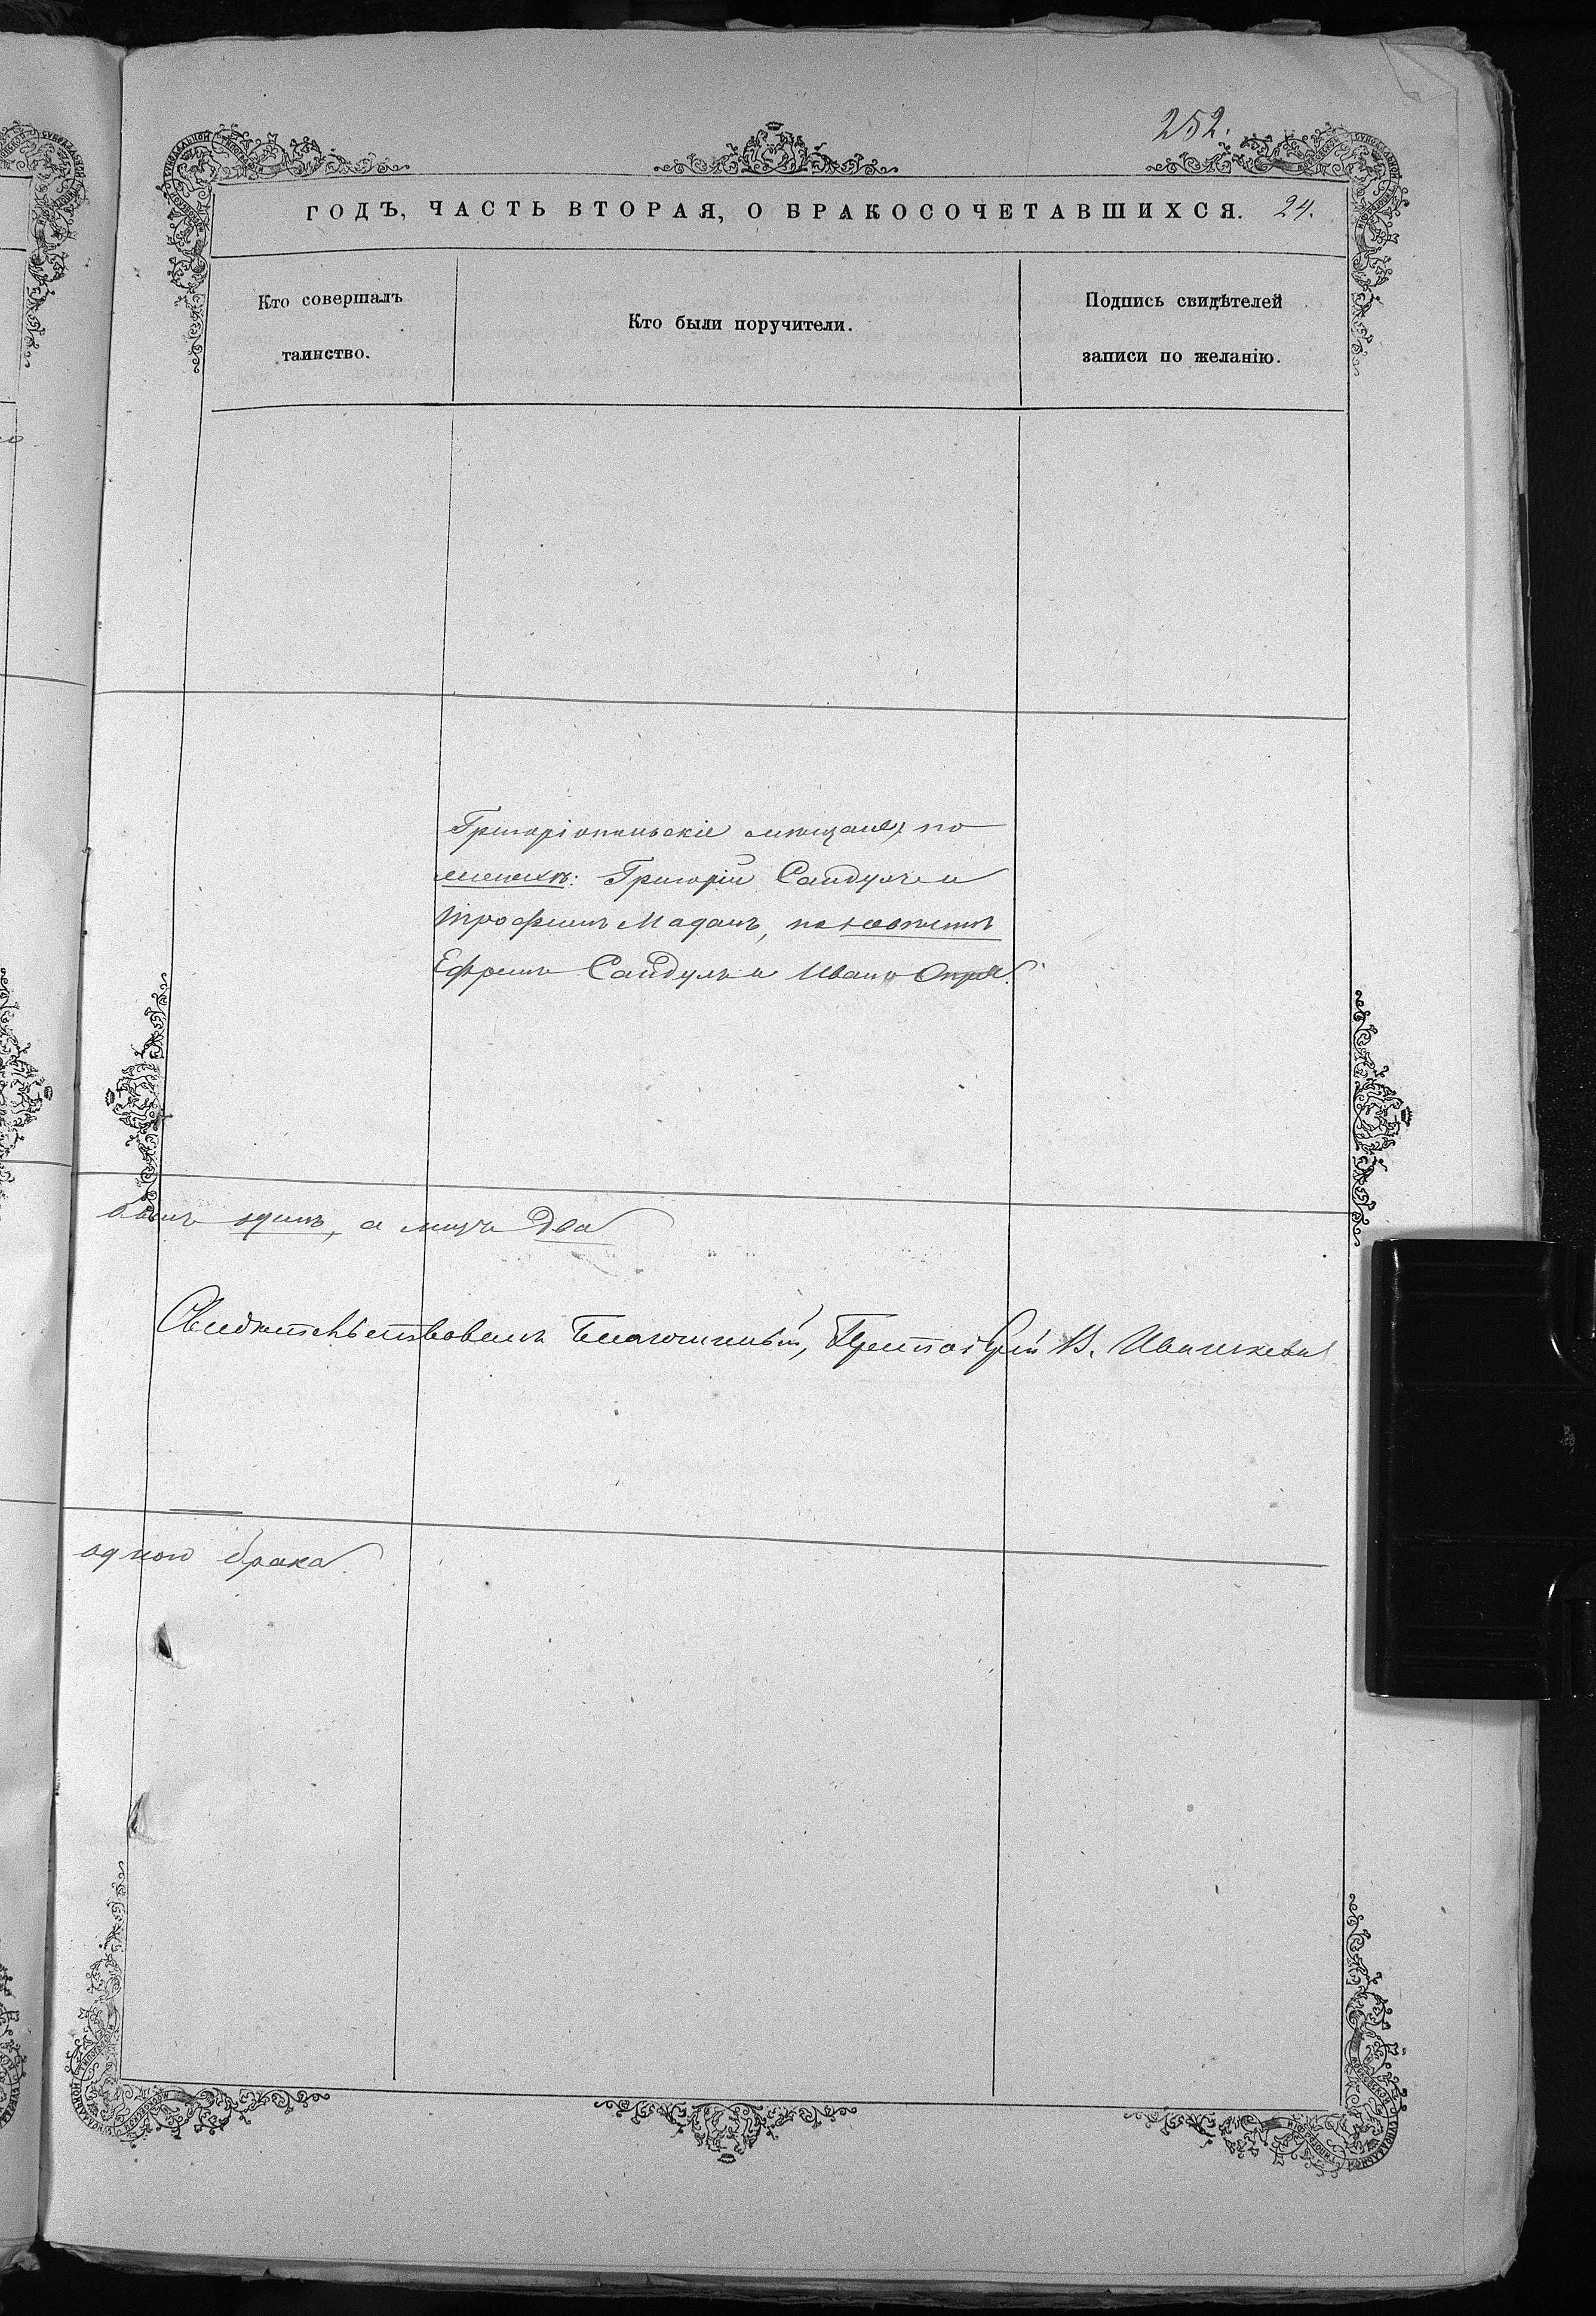 252.
ГОДЪ, ЧАСТЬ ВТОРАЯ, О БРАКОСОЧЕТАВШИХСЯ. 24.
Кто совершалъ
таинство.
Кто были поручители.
Подпись свидѣтелей
записи по желанію.
Григоріопольскіе мѣщане, по
женихѣ: Григорій Сандулъ и
Трофимъ Маданъ, по невѣстѣ
Ефремъ Сандулъ и Иванъ
бракъ одинъ, а лицъ два
Свидѣтельствовалъ Благочинный, Протоіерей В.
одного брака.